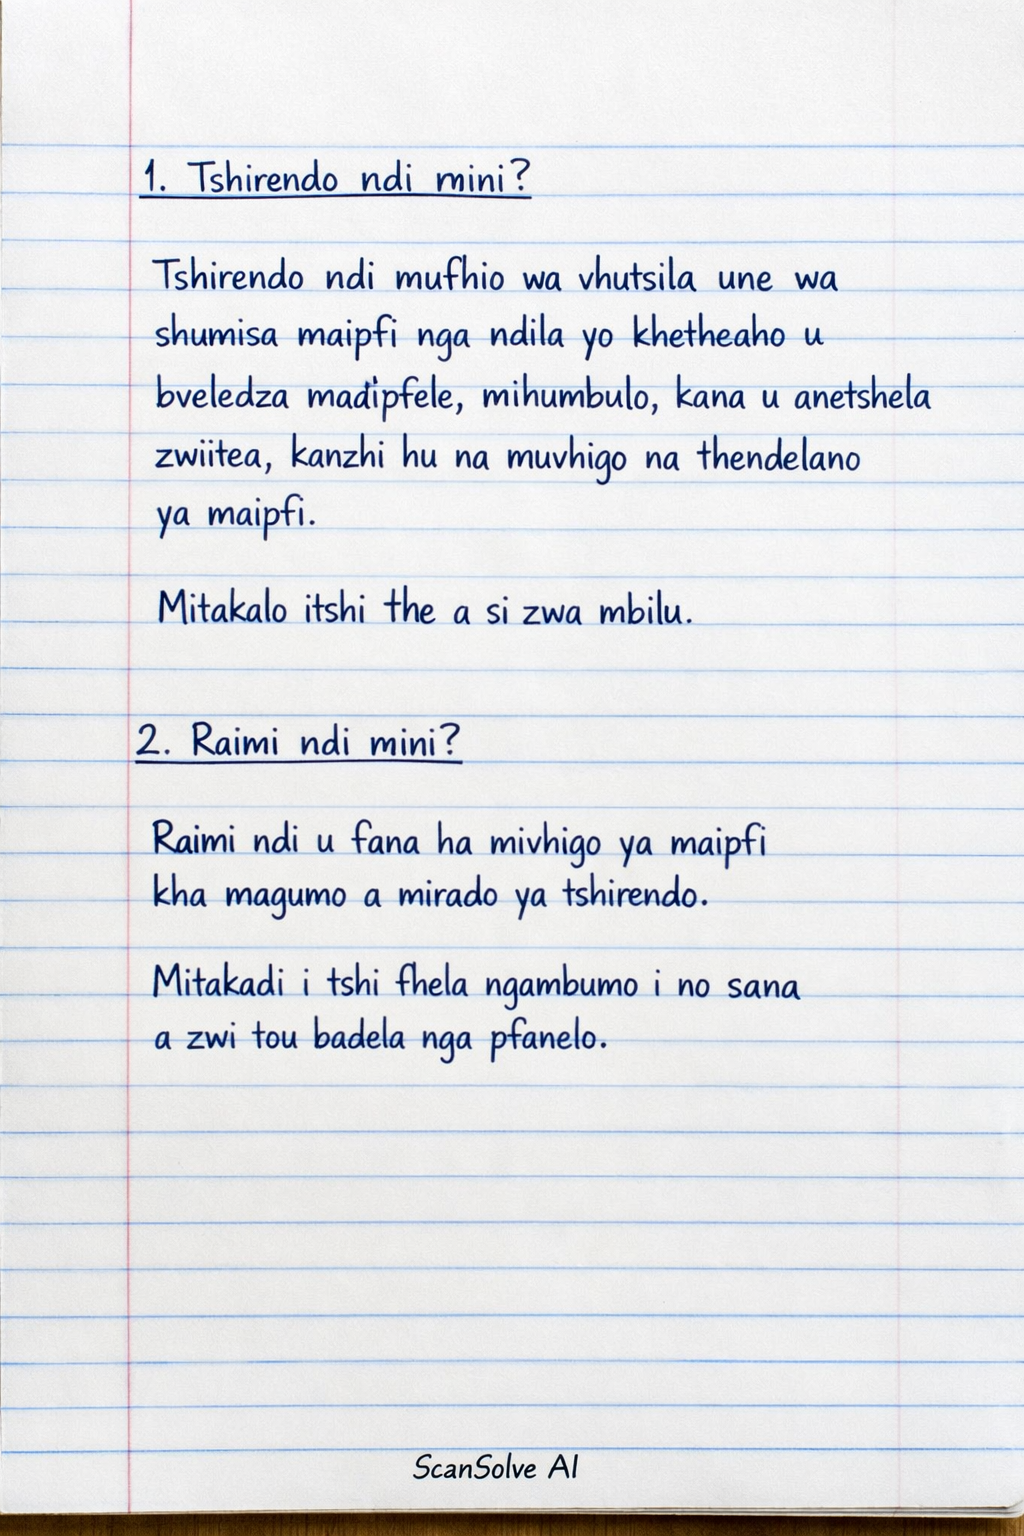 1. Tshirendo ndi mini?
Tshirendo ndi mufhio wa vhutsila une wa
shumisa maipfi nga ndila yo khetheaho u
bveledza madipfele, mihumbulo, kana u anetshela
zwiitea, kanzhi hu na muvhigo na thendelano
ya maipfi.
Mitakalo itshi the a si zwa mbilu.
2. Raimi ndi mini?
Raimi ndi u fana ha mivhigo ya maipfi
kha magumo a mirado ya tshirendo.
Mitakadi i tshi fhela ngambumo i no sana
a zwi tou badela nga pfanelo.
ScanSolve AI